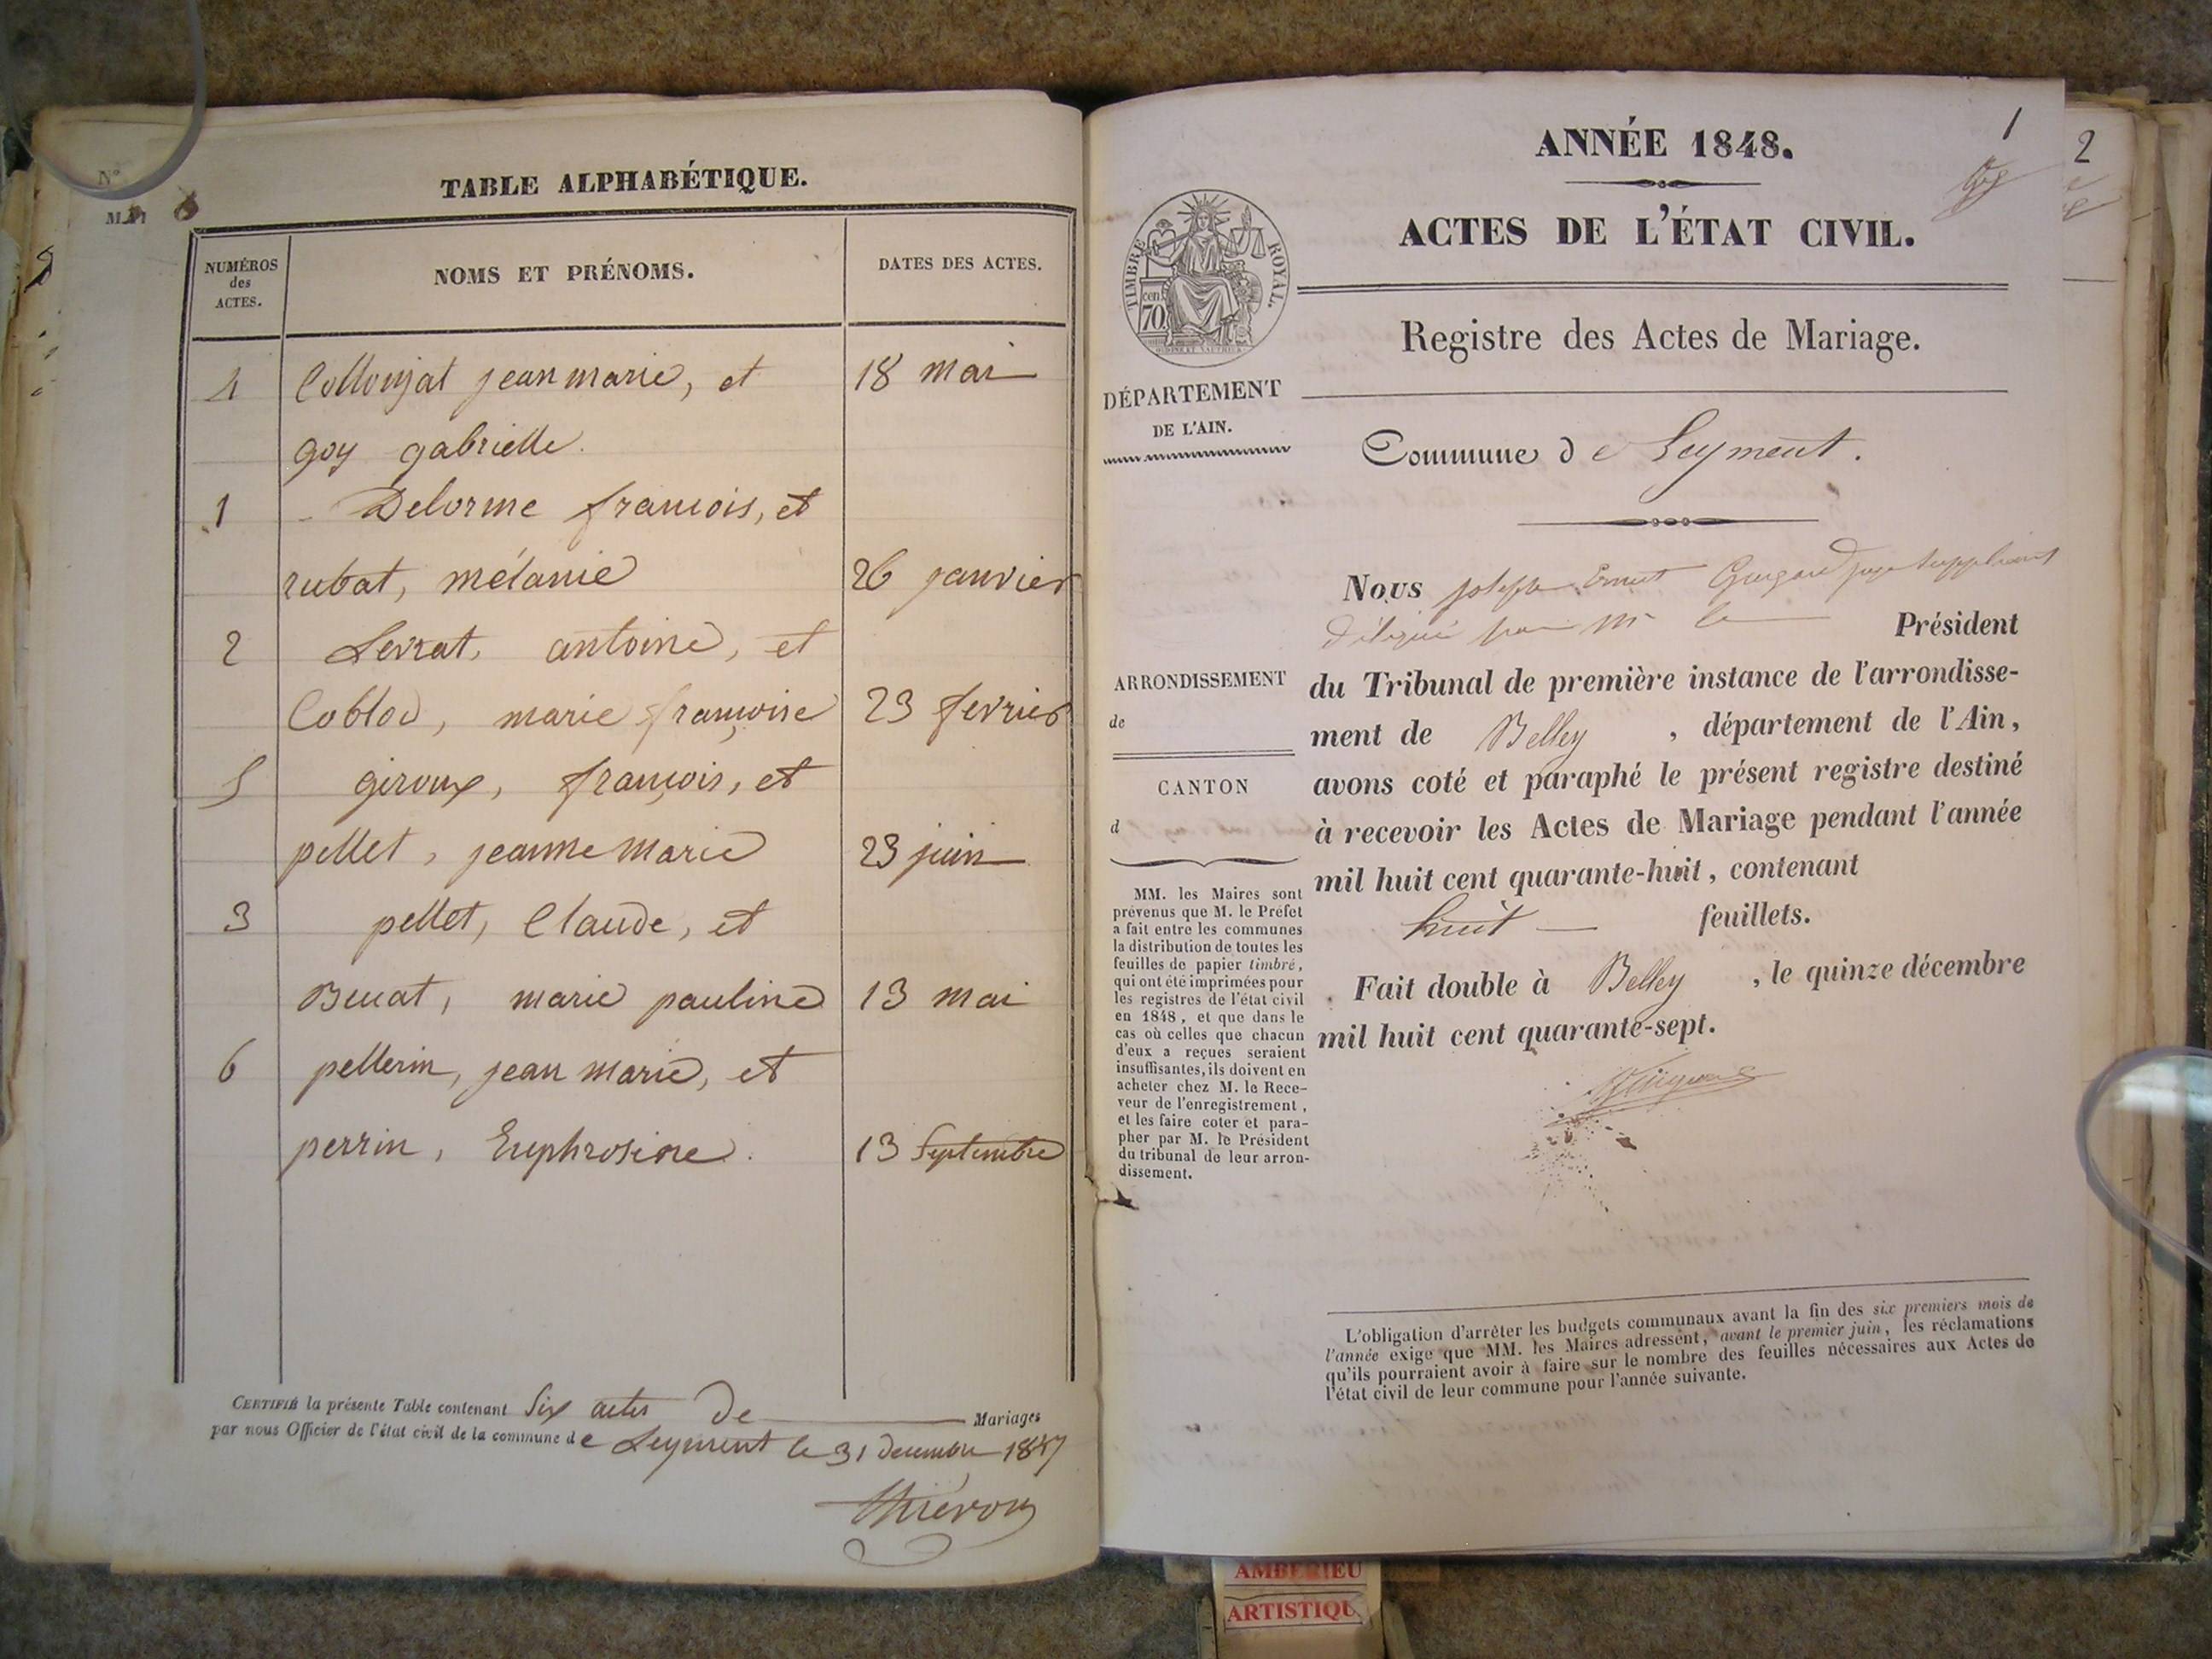 N°
TABLE ALPHABÉTIQUE.
NUMÉROS des ACTES.
NOMS ET PRÉNOMS.
DATES DES ACTES.
4 Collonjat jean marie, et 18 mai
goy gabrielle.
1 Delorme francois, et
rubat, mélanie 26 janvier
2 Levrat, antoine, et
Coblod, marie françoise 23 fevrier
5 giroux, françois, et
pellet, jeanne marie 23 juin
3 pellet, Claude, et
marie pauline 13 mai
6 pellerin, jean marie, et
perrin, Euphrosine. 13 Septembre
CERTIFIÉ la présente Table contenant Six actes De Mariages
par nous Officier de l'état civil de la commune de Leyment le 31 decembre 1847
Thiévon
1
2
ANNÉE 1848.
ACTES DE L'ÉTAT CIVIL.
TIMBRE ROYAL.
cen
70
Registre des Actes de Mariage.
DÉPARTEMENT
DE L'AIN.
Commune de Leyment.
Nous joseph Ernest juge Suppléant
Délégué par Mr le Président
du Tribunal de première instance de l'arrondisse-
ment de Belley, département de l'Ain,
avons coté et paraphé le présent registre destiné
à recevoir les Actes de Mariage pendant l'année
mil huit cent quarante-huit, contenant
huit feuillets.
Fait double à Belley, le quinze décembre
mil huit cent quarante-sept.
ARRONDISSEMENT
de
CANTON
d
MM. les Maires sont
prévenus que M. le Préfet
a fait entre les communes
la distribution de toutes les
feuilles de papier timbré,
qui ont été imprimées pour
les registres de l'état civil
en 1848, et que dans le
cas où celles que chacun
d'eux a reçues seraient
insuffisantes, ils doivent en
acheter chez M. le Rece-
veur de l'enregistrement,
et les faire coter et para-
pher par M. le Président
du tribunal de leur arron-
dissement.
L'obligation d'arrêter les budgets communaux avant la fin des six premiers mois de
l'année exige que MM. les Maires adressent, avant le premier juin, les réclamations
qu'ils pourraient avoir à faire sur le nombre des feuilles nécessaires aux Actes de
l'état civil de leur commune pour l'année suivante.
AMBERIEU
ARTISTIQU